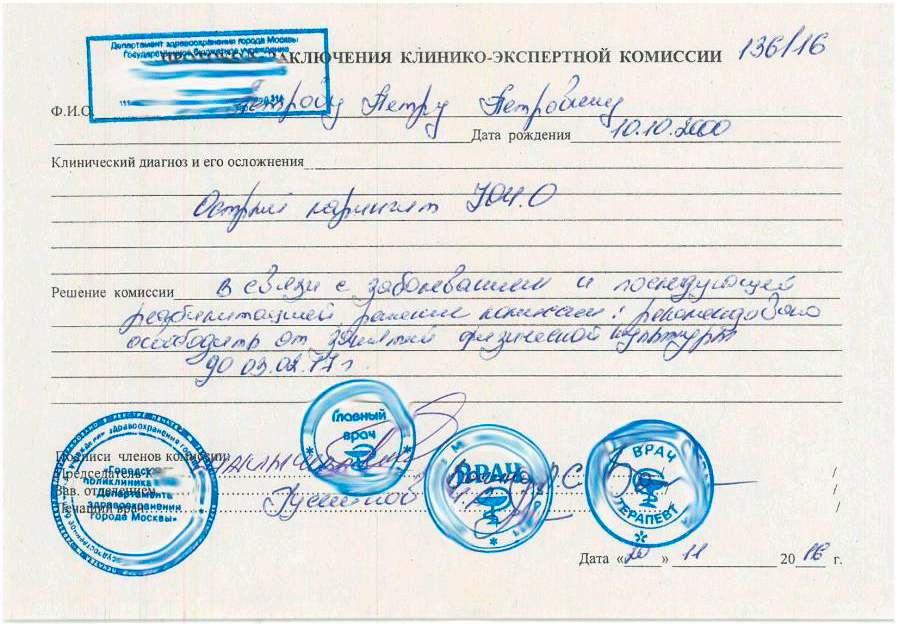 Департамент здравоохранения города Москвы
Государственное бюджетное учреждение
ЗАКЛЮЧЕНИЯ КЛИНИКО-ЭКСПЕРТНОЙ КОМИССИИ 136/16
Ф.И.О. Петрову Петру Петровичу
Дата рождения 10.10.2000
Клинический диагноз и его осложнения
Острый ларингит J04.0
Решение комиссии в связи с заболеванием и последующей
реабилитацией решение комиссии: рекомендовано
освободить от занятий физической культуры
до 03.02.17 г.
Главный
врач
ВРАЧ
ВРАЧ
ТЕРАПЕВТ
Подписи членов комиссии:
Председатель
Зав. отделением
Лечащий врач
«Городская
поликлиника
департамента
здравоохранения
города Москвы»
Дата «20» 11 2016 г.